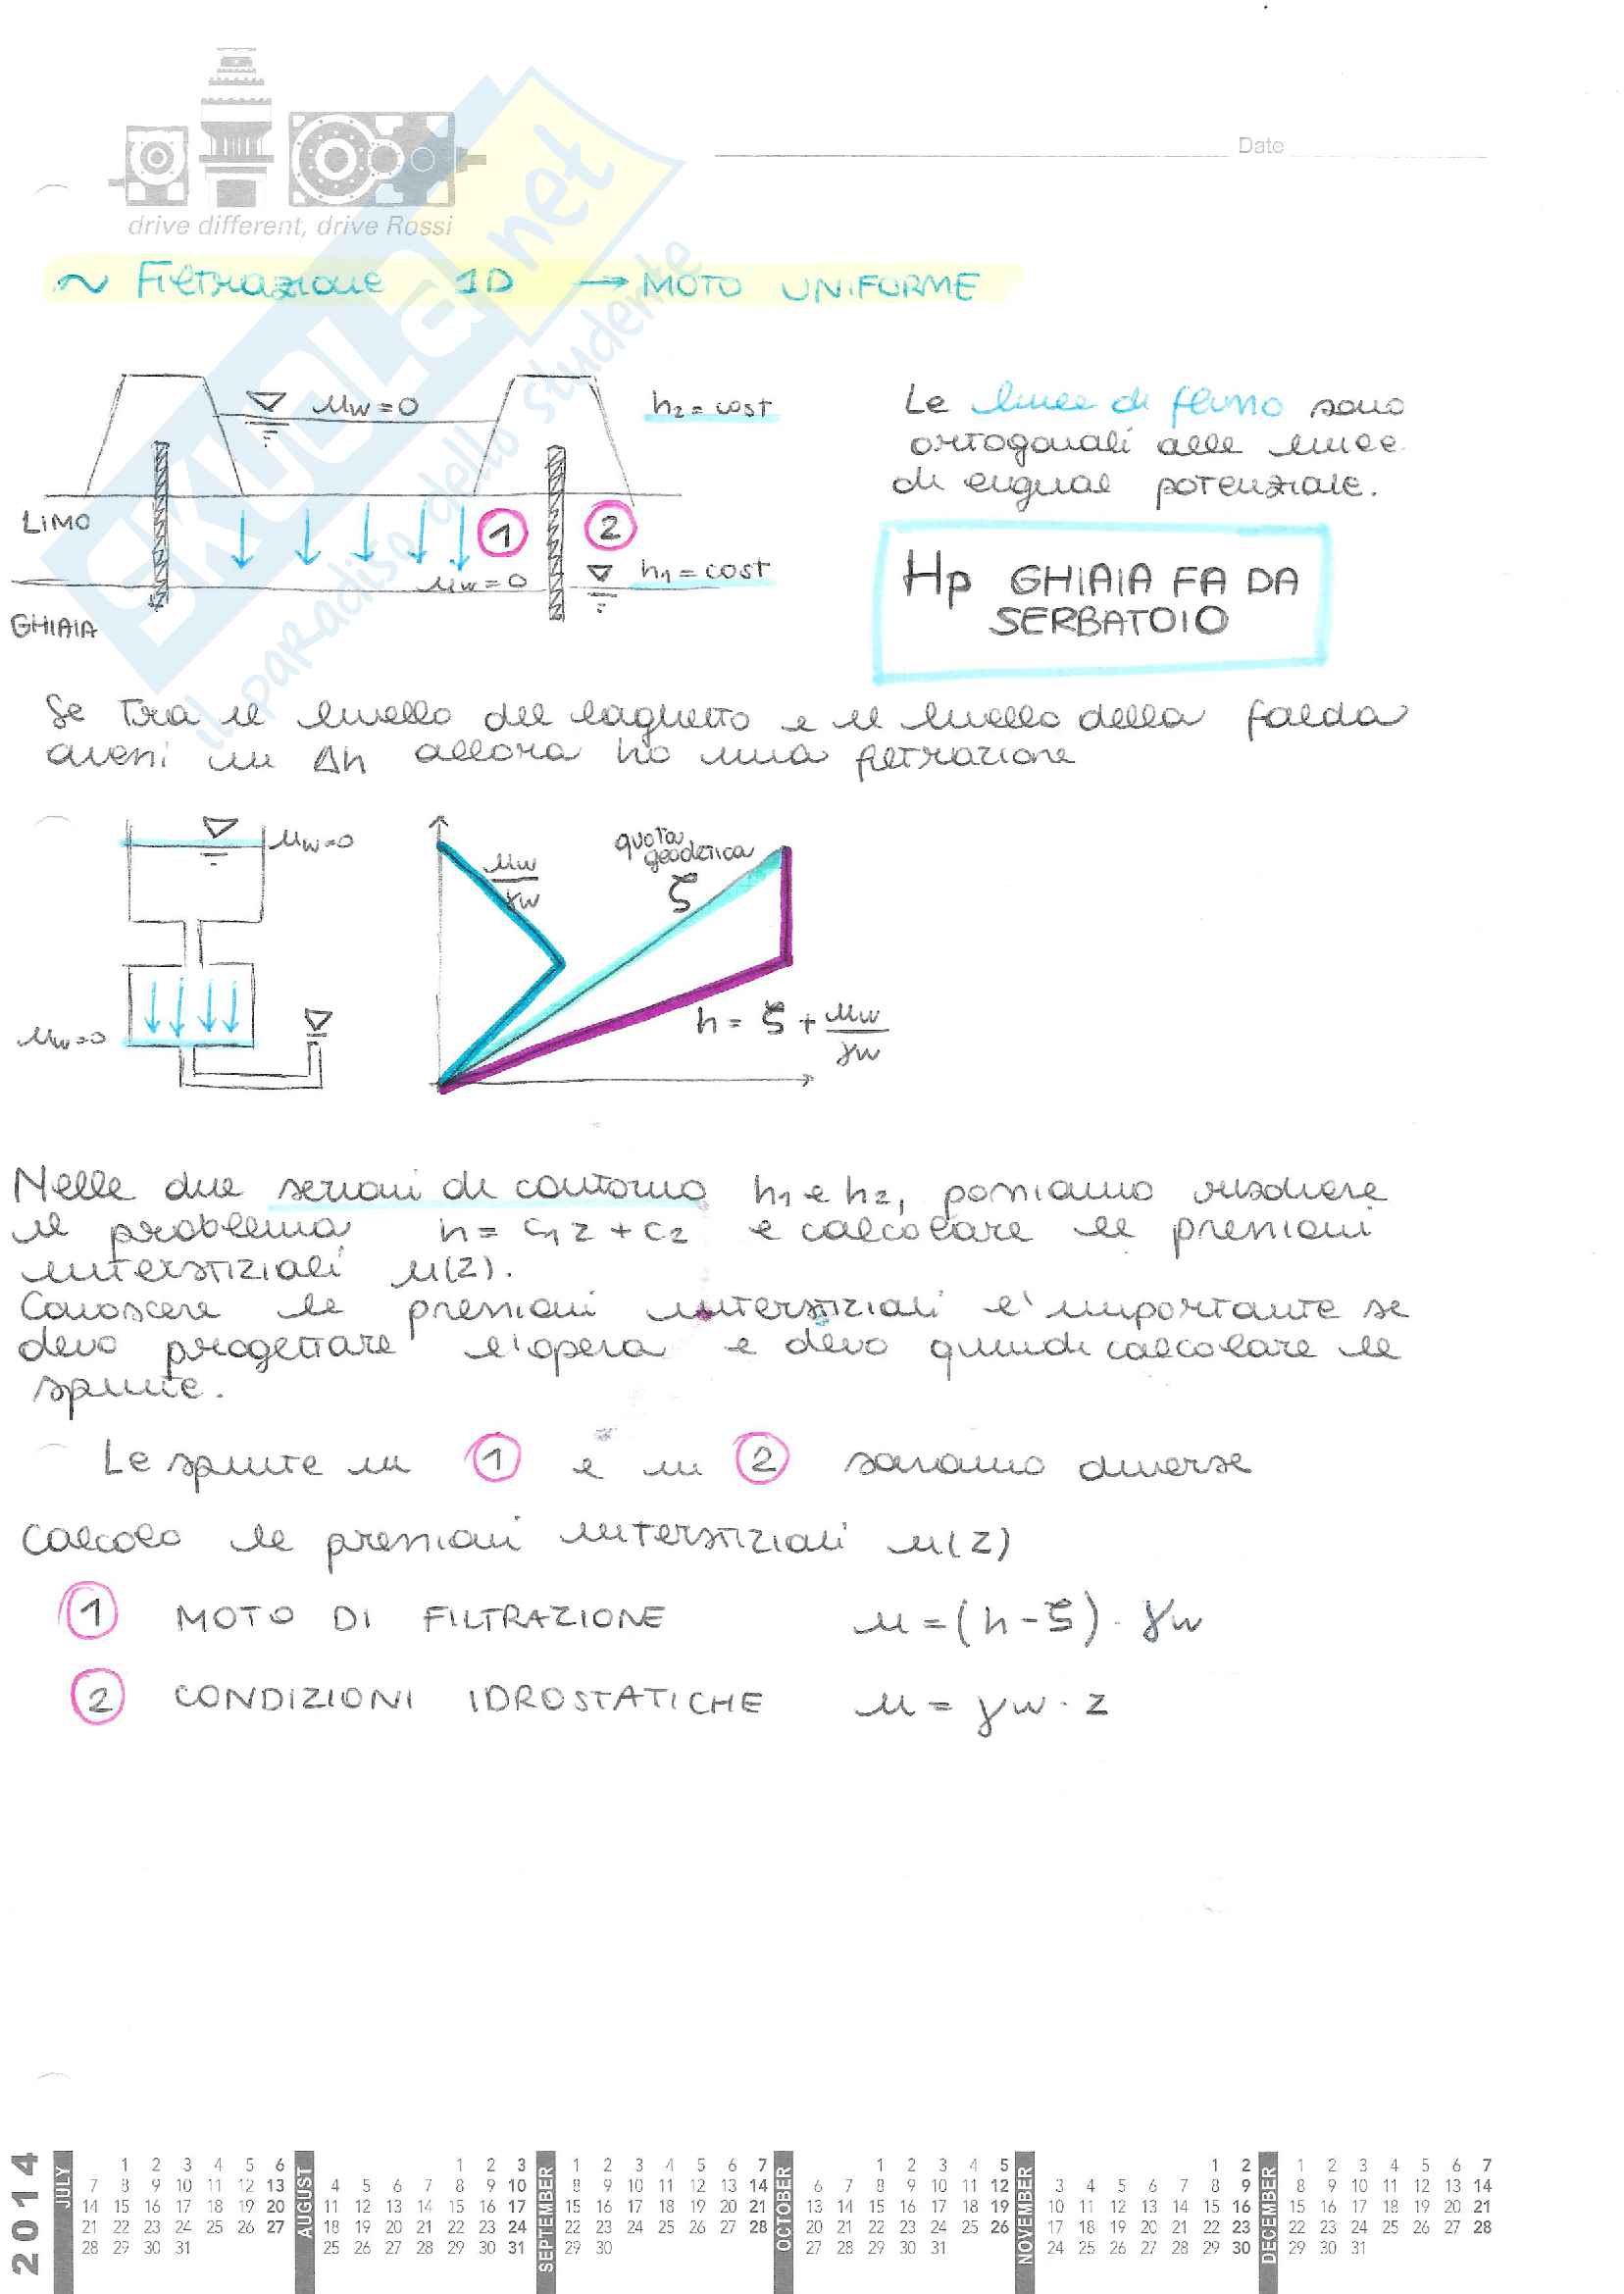 Date
drive different, drive Rossi
SKUOLA.net
il paradiso dello studente
~ Filtrazione 1D → MOTO UNIFORME
μw=0
h2 = cost
Le linee di flusso sono
ortogonali alle linee
di egual potenziale.
LIMO
1
2
μw=0
h1 = cost
GHIAIA
Hp GHIAIA FA DA
SERBATOIO
Se tra il livello del laghetto e il livello della falda
avessi un Δh allora ho una filtrazione
μw=0
μw/γw
quota
geodetica
ζ
μw=0
h = ζ + μw/γw
Nelle due sezioni di contorno h1 e h2, possiamo risolvere
il problema h = c1 z + c2 e calcolare le pressioni
interstiziali μ(z).
Conoscere le pressioni interstiziali e' importante se
devo progettare l'opera e devo quindi calcolare le
spinte.
Le spinte in 1 e in 2 saranno diverse
Calcolo le pressioni interstiziali μ(z)
1 MOTO DI FILTRAZIONE μ = (h - ζ) · γw
2 CONDIZIONI IDROSTATICHE μ = γw · z
2014
JULY
1 2 3 4 5 6
7 8 9 10 11 12 13
14 15 16 17 18 19 20
21 22 23 24 25 26 27
28 29 30 31
AUGUST
1 2 3
4 5 6 7 8 9 10
11 12 13 14 15 16 17
18 19 20 21 22 23 24
25 26 27 28 29 30 31
SEPTEMBER
1 2 3 4 5 6 7
8 9 10 11 12 13 14
15 16 17 18 19 20 21
22 23 24 25 26 27 28
29 30
OCTOBER
1 2 3 4 5
6 7 8 9 10 11 12
13 14 15 16 17 18 19
20 21 22 23 24 25 26
27 28 29 30 31
NOVEMBER
1 2
3 4 5 6 7 8 9
10 11 12 13 14 15 16
17 18 19 20 21 22 23
24 25 26 27 28 29 30
DECEMBER
1 2 3 4 5 6 7
8 9 10 11 12 13 14
15 16 17 18 19 20 21
22 23 24 25 26 27 28
29 30 31